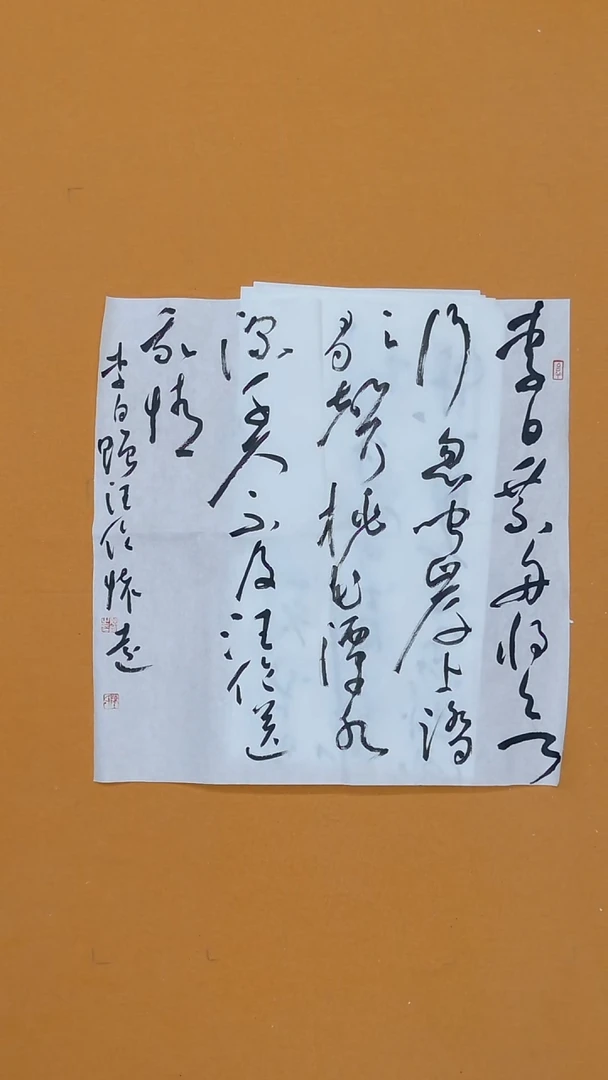 李白乘舟将欲
行忽闻岸上踏
歌聲桃花潭水
深千尺不及汪伦送
我情
李白赠汪伦怀远